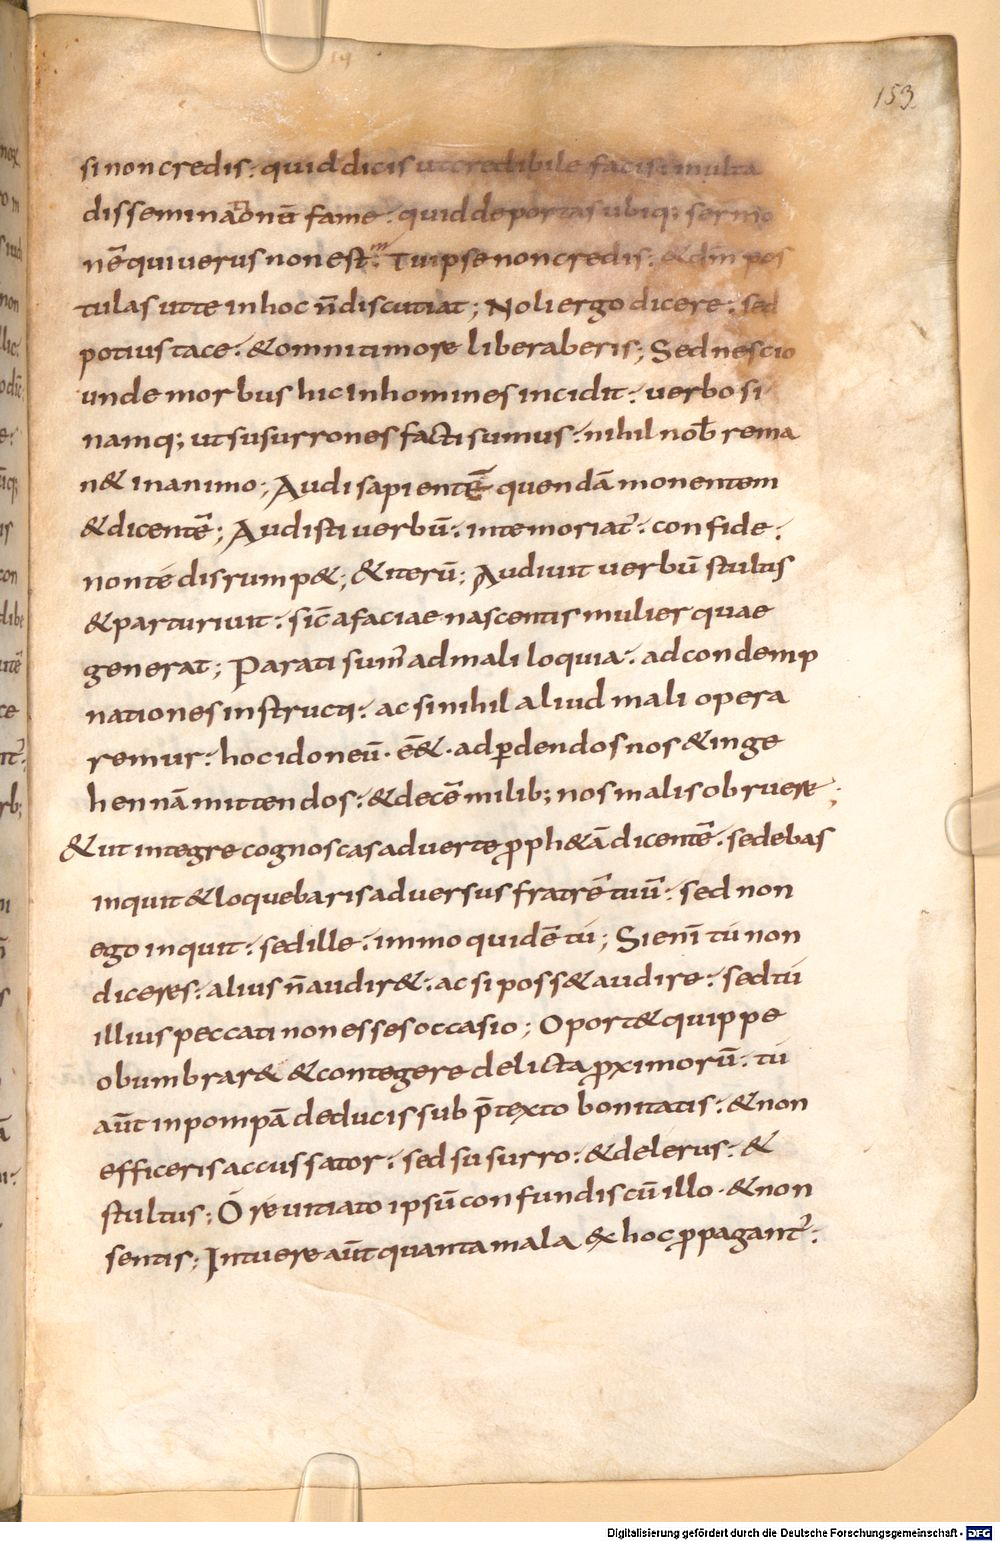 153
si non credis ⁖ quid dicis ut credibile facis ⁖ multa
disseminationū fame ⁖ quid deportas ubiq; sermo
nē qui verus non est ⁖ Tu ipse non credis ⁖ & dm̄ pos
tulas ut te in hoc n̄ discutiat ; Noli ergo dicere ⁖ sed
potius tace ⁖ & omni timore liberaberis ; Sed nescio
unde morbus hic in homines incidit ⁖ verbosi
namq; ut susurrones facti sumus ⁖ nihil nob̄ rema
n& in animo ; Audi sapientē quendā monentem
& dicentē ; Audisti verbū ⁖ in te moriat᷑ ⁖ confide ⁖
non té disrump& ; & iterū ; Audivit verbū stultis
& parturivit ⁖ sic̄ a faciae nascentis mulier quae
generat ; Parati sum᷑ ad maliloquia ⁖ ad condemp
nationes instructi ⁖ ac si nihil aliud mali opera
remur ⁖ hoc idoneū · ēē& · ad ꝑdendos nos & in ge
hennā mittendos ⁖ & decē milib; nos malis obruere ;
& ut integre cognoscas adverte ꝓph&ā dicentē ⁖ sedebas
inquit & loquebaris adversus fratrē tuū ⁖ sed non
ego inquit ⁖ sed ille ⁖ immo quidē tú ; Si enī tú non
diceres ⁖ alius n̄ audir& ⁖ ac si poss& audire ⁖ sed tú
illius peccati non esses occasio ; Oport& quippe
obumbrar& & contegere delicta ꝓximorū ⁖ tú
aūt in pompā deducis sub p̄texto bonitatis ⁖ & non
efficeris accussator ⁖ sed susurro ⁖ & delerus ⁖ &
stultus ; Ó re vitiato ipsū confundis cū illo · & non
sentis ; Intuere aūt quanta mala ex hoc ꝓpagant᷑ ⁖
Digitalisierung gefördert durch die Deutsche Forschungsgemeinschaft - DFG